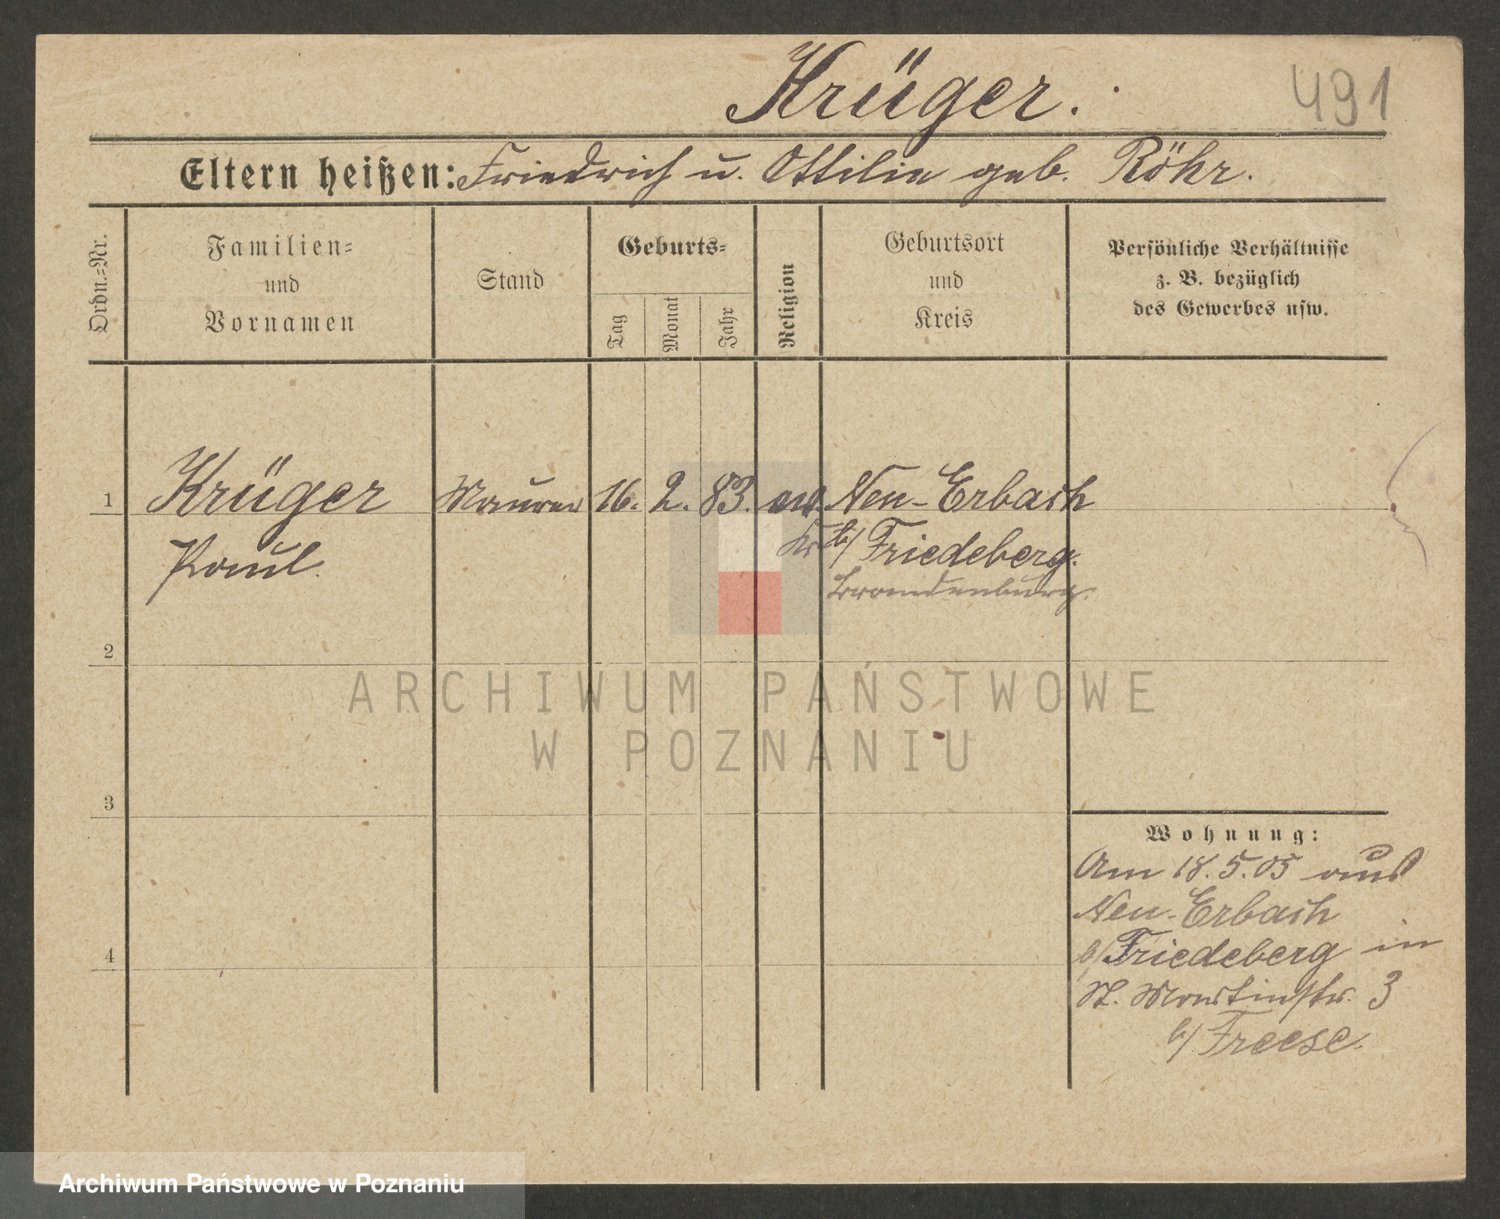 Krüger.
491
Eltern heißen: Friedrich u. Ottilie geb. Röhr.
Ordn.=Nr.
Familien=
und
Vornamen
Stand
Geburts=
Tag
Monat
Jahr
Religion
Geburtsort
und
Kreis
Persönliche Verhältnisse
z. B. bezüglich
des Gewerbes usw.
1 Krüger Maurer 16. 2. 83. ev. Neu-Erbach
Paul. Kr. b/ Friedeberg.
Brandenburg.
2
ARCHIWUM PAŃSTWOWE
W POZNANIU
3
Wohnung:
Am 18.5.05 aus
Neu-Erbach
b/Friedeberg in
4
St. Martinstr. 3
b/ Freese.
Archiwum Państwowe w Poznaniu